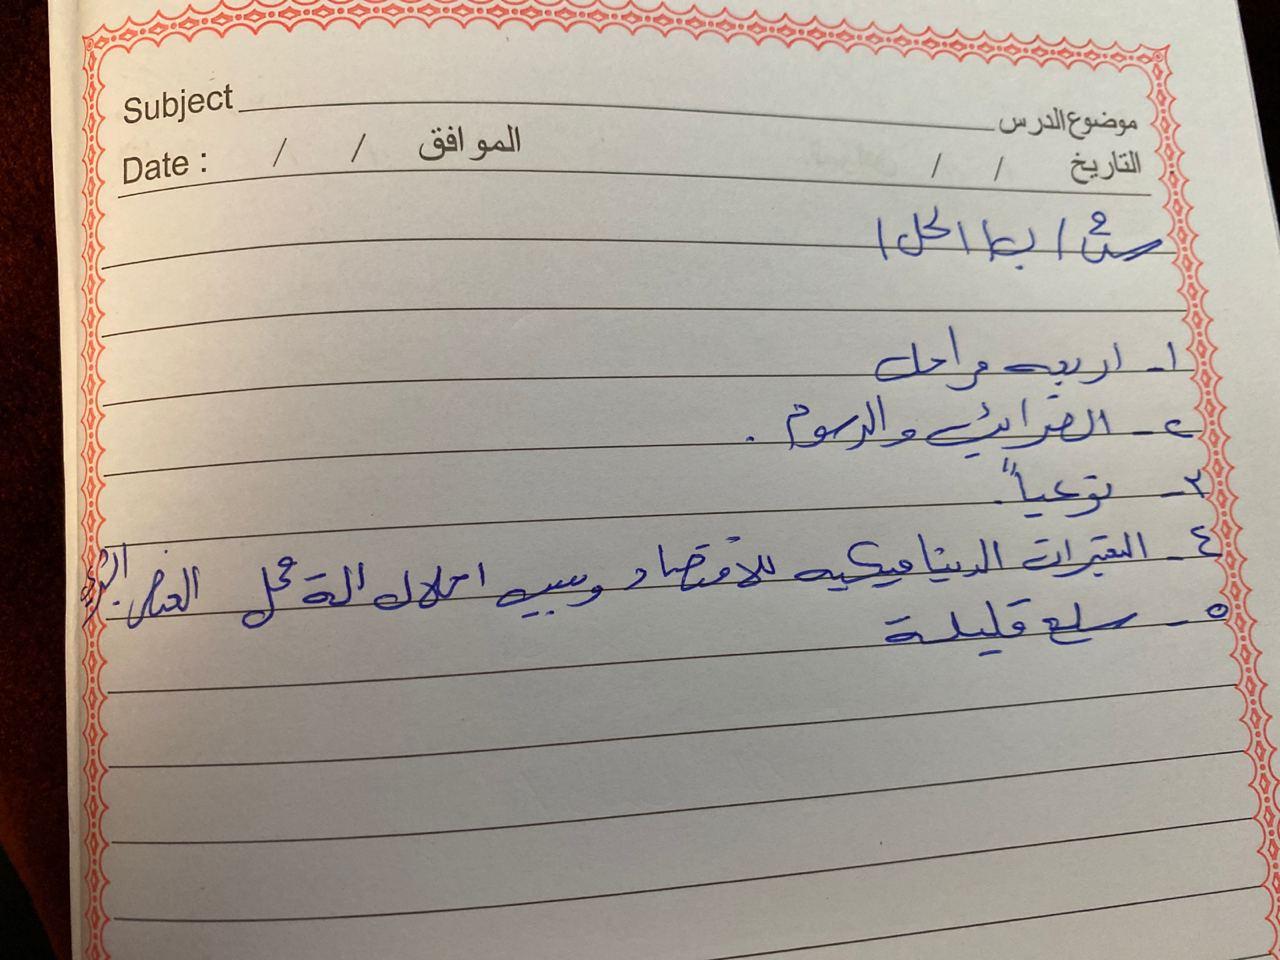 Subject موضوع الدرس
Date : / / الموافق / / التاريخ
س٢ / ب / الحل /
١- اربعه مراحل
٢- الضرائب والرسوم .
٣- نوعياً .
٤- التغيرات الديناميكيه للاقتصاد وسبب احلال الة محل العنصر البشري
٥- سلع قليلة